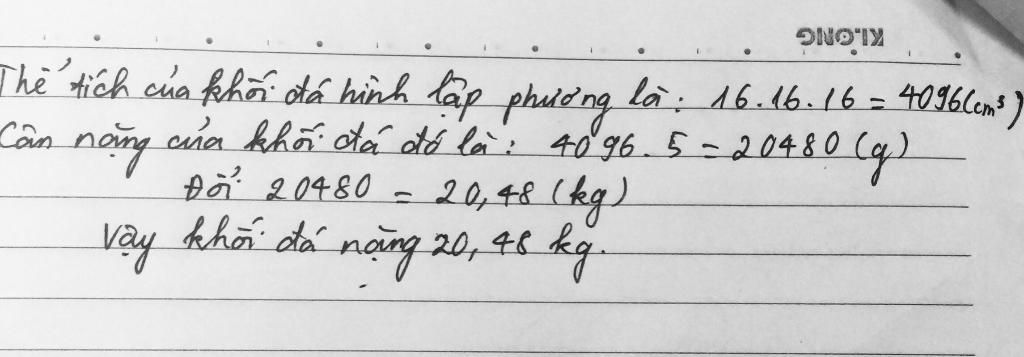 KLONG
Thể tích của khối đá hình lập phương là: 16.16.16 = 4096(cm³)
Cân nặng của khối đá đó là: 4096.5 = 20480 (g)
Đổi 20480 = 20,48 (kg)
Vậy khối đá nặng 20,48 kg.